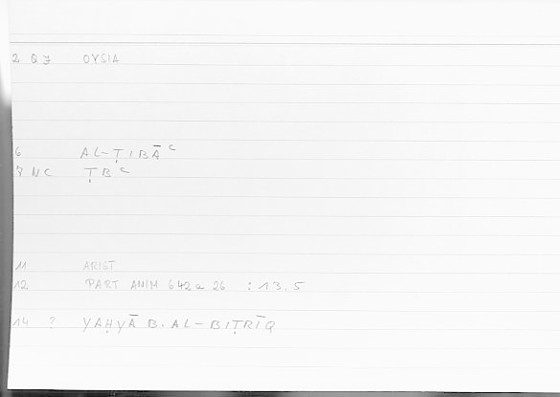 2 Q J OYSIA
6 AL-ṬIBĀʿ
7 NC ṬBʿ
11 ARIST
12 PART ANIM 642a 26 : 13.5
14 ? YAḤYĀ B. AL-BIṬRĪQ